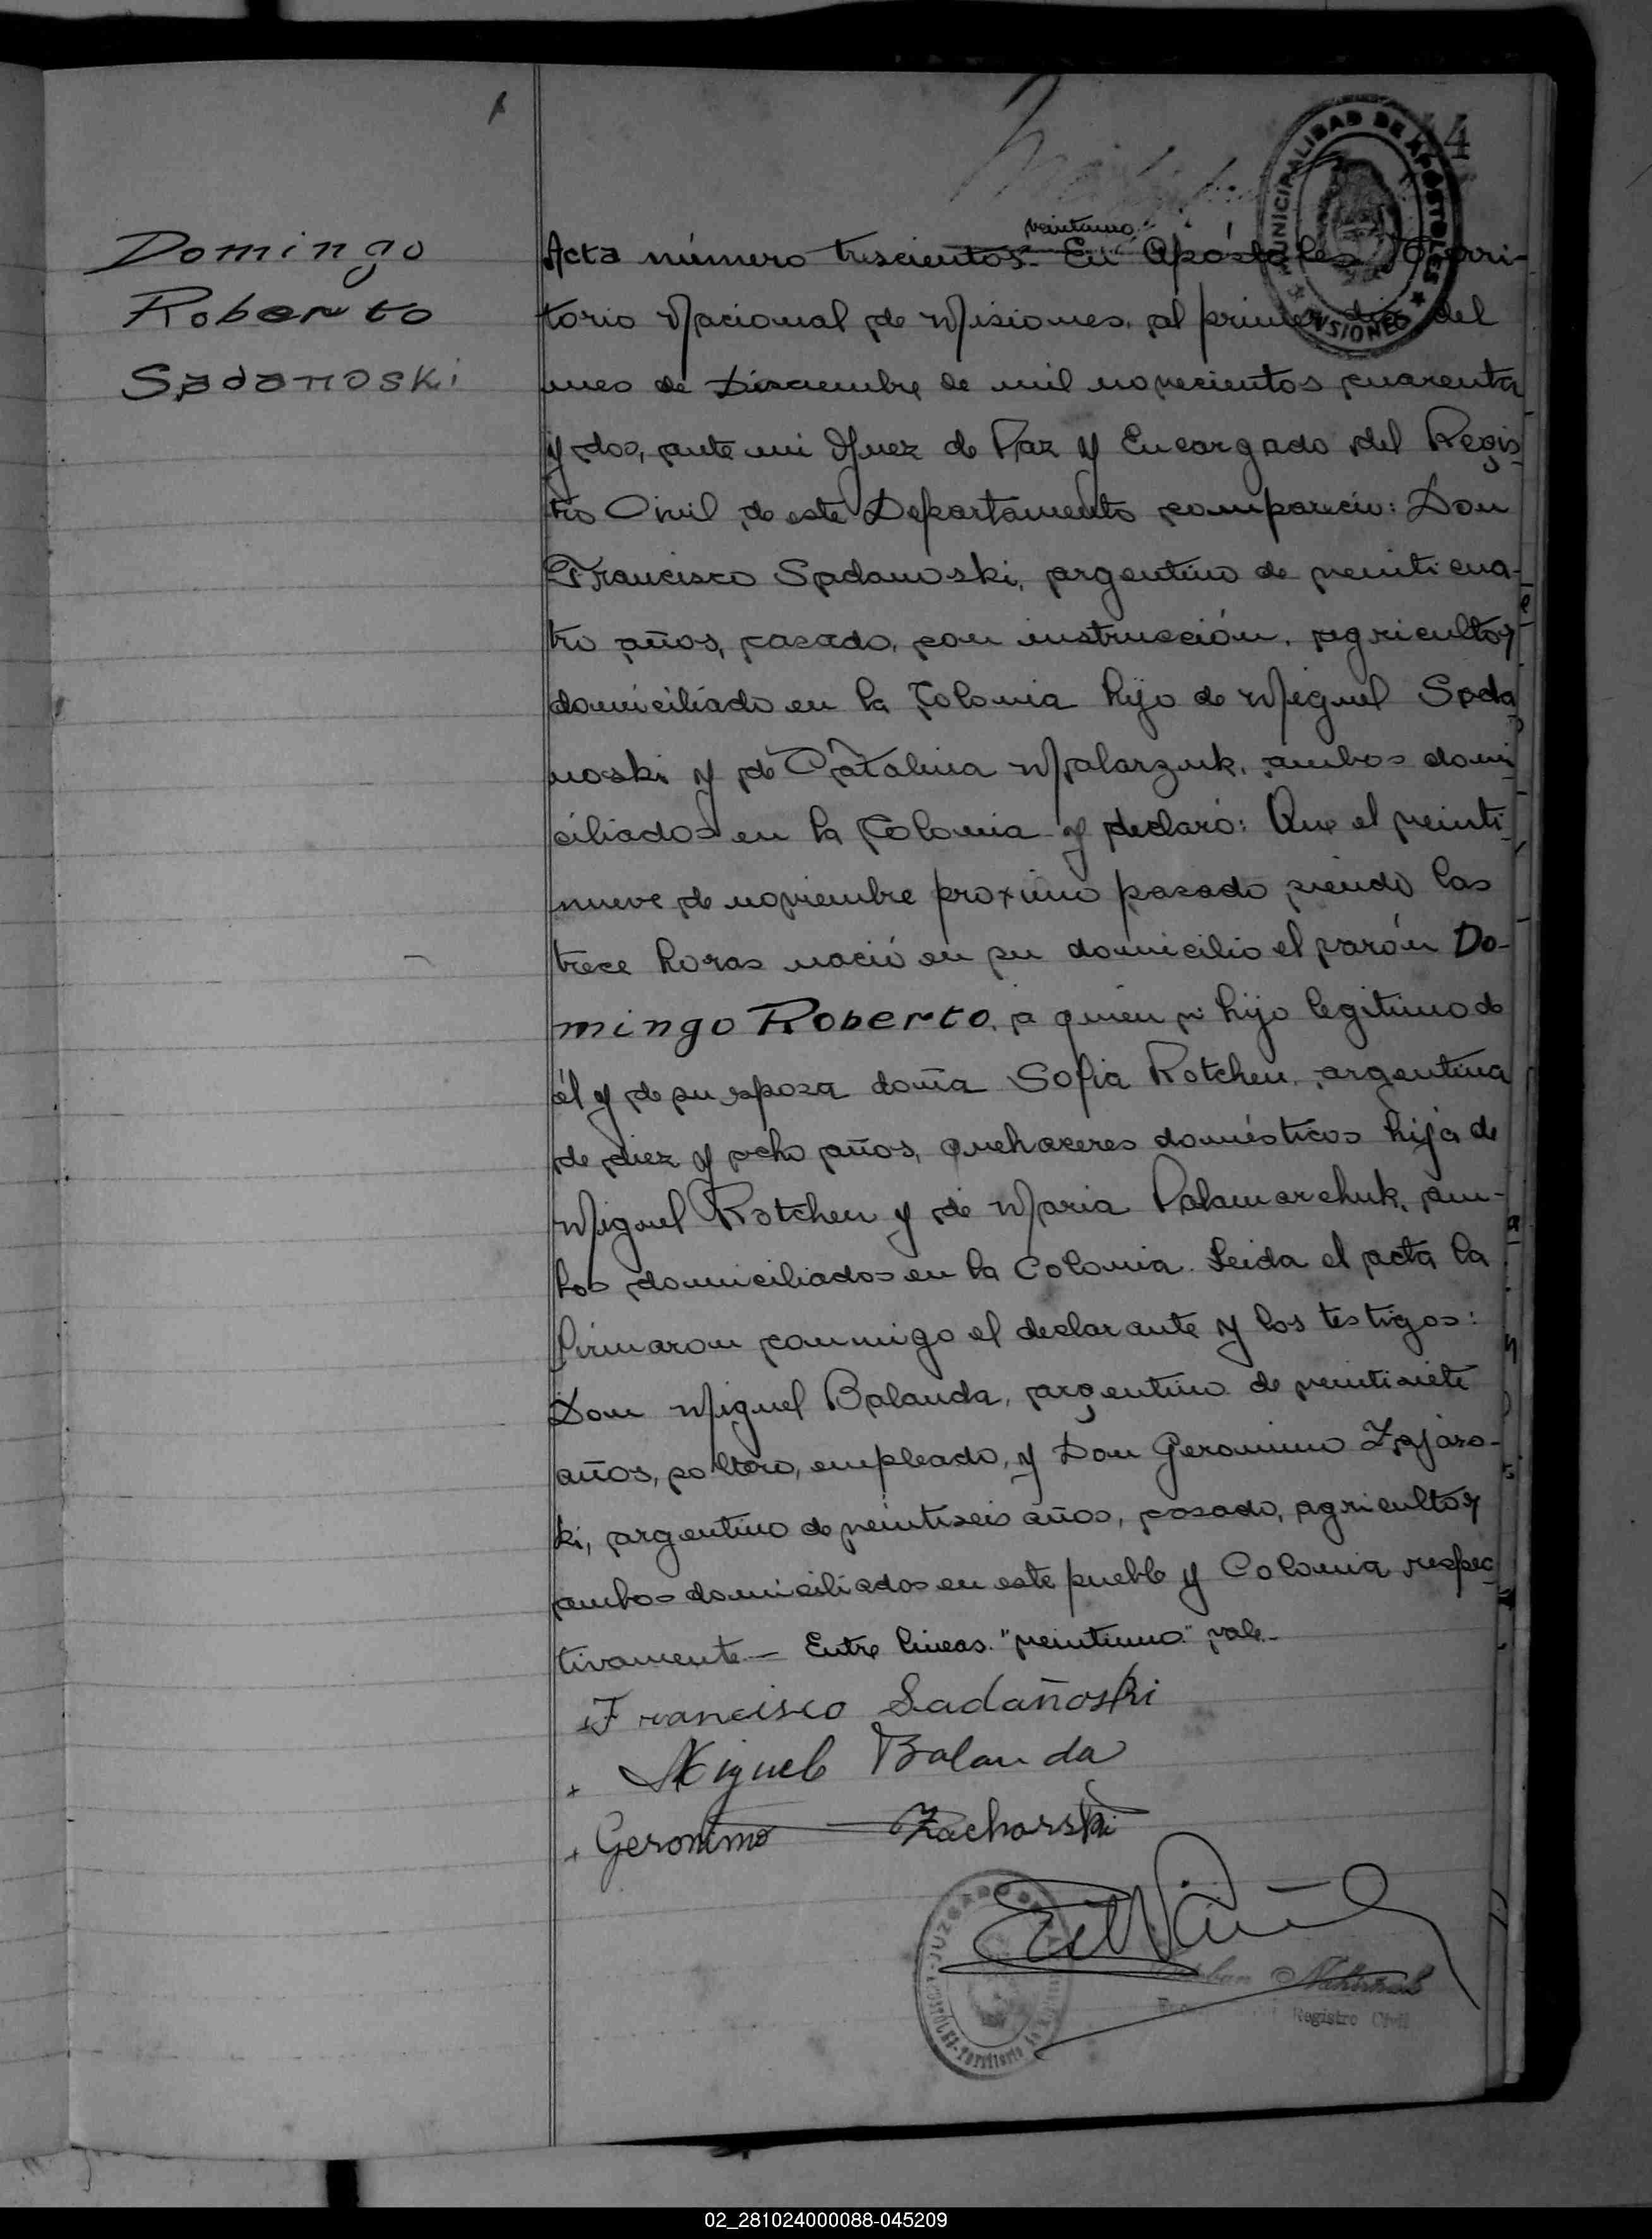 44
MUNICIPALIDAD DE APÓSTOLES
MISIONES
Domingo
Roberto
Sadanoski
veintiuno
Acta número trescientos. En Apóstoles, Terri-
torio Nacional de Misiones, al primer dia del
mes de Diciembre de mil novecientos cuarenta
y dos, ante mi Juez de Paz y Encargado del Regis-
tro Civil de este Departamento compareció: Don
Francisco Sadanoski, argentino de veinticua-
tro años, casado, con instrucción, agricultor
domiciliado en la Colonia hijo de Miguel Sada
noski y de Catalina Malarzuk, ambos domi
ciliados en la Colonia y declaró: Que el veinti
nueve de noviembre proximo pasado siendo las
trece horas nació en su domicilio el varón Do-
mingo Roberto, a quien vi hijo legitimo de
él y de su esposa doña Sofia Rotchen, argentina
de diez y ocho años, quehaceres domésticos hija de
Miguel Rotchen y de Maria Palamarchuk, am-
bos domiciliados en la Colonia. Leida el acta la
firmaron conmigo el declarante y los testigos:
Don Miguel Balanda, argentino de veintisiete
años, soltero, empleado, y Don Geronimo Zajars-
ki, argentino de veintiseis años, casado, agricultor
ambos domiciliados en este pueblo y Colonia respec
tivamente — Entre lineas. "veintiuno" vale.-
Francisco Sadañoski
Miguel Balanda
Geronimo Zacharski
JUZGADO DE PAZ
Registro Civil
02_281024000088-045209